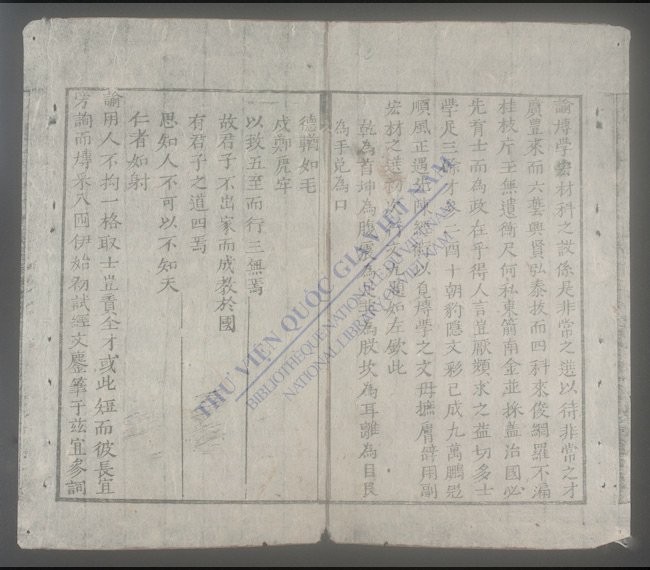 諭博學宏材科之設係是非常之選以待非常之才
廣豐來而六藝興賢弘泰拔而四科來俊網羅不漏
桂枝片玉無遺衡尺何私東箭南金並採蓋治國必
先育士而為政在乎得人言豈厭類求之益切多士
學足三餘才多二酉十朝豹隱文彩已成九萬鵬
順風正遇 陳 以見博學之文毋摭膚辭用副
宏材之選 次 文九題如左欽此
乾為首坤為腹震為足巽為股坎為耳離為目艮
為手兌為口
德輶如毛
戍鄭虎牢
以致五至而行三無焉
故君子不出家而成教於國
有君子之道四焉
思知人不可以不知天
仁者如射
諭用人不拘一格取士豈責全才或此短而彼長宜
旁詢而博采 伊始初試經文鏖筆于茲宜多詞
THƯ VIỆN QUỐC GIA VIỆT NAM
BIBLIOTHÈQUE NATIONALE DU VIETNAM
NATIONAL LIBRARY OF VIETNAM